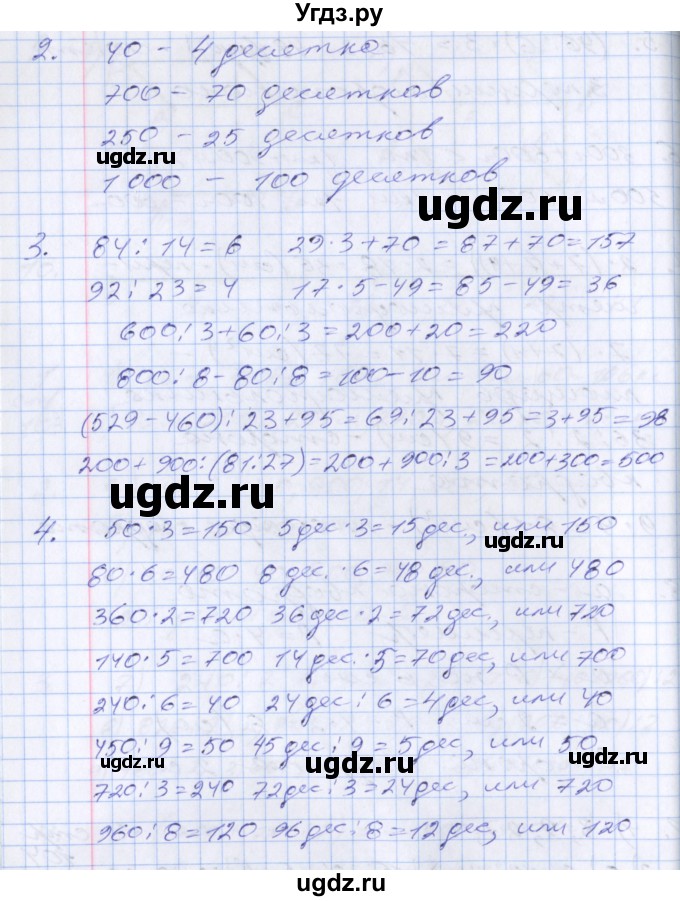 Угдз.ру
2. 40 – 4 десятка
700 – 70 десятков
250 – 25 десятков
ugdz.ru
1 000 – 100 десятков
ugdz.ru
3. 84 : 14 = 6 29 · 3 + 70 = 87 + 70 = 157
92 : 23 = 4 17 · 5 – 49 = 85 – 49 = 36
600 : 3 + 60 : 3 = 200 + 20 = 220
800 : 8 – 80 : 8 = 100 – 10 = 90
(529 – 460) : 23 + 95 = 69 : 23 + 95 = 3 + 95 = 98
200 + 900 : (81 : 27) = 200 + 900 : 3 = 200 + 300 = 500
ugdz.ru
4. 50 · 3 = 150 5 дес · 3 = 15 дес., или 150
ugdz.ru
80 · 6 = 480 8 дес. · 6 = 48 дес., или 480
360 · 2 = 720 36 дес · 2 = 72 дес, или 720
140 · 5 = 700 14 дес. · 5 = 70 дес, или 700
240 : 6 = 40 24 дес : 6 = 4 дес, или 40
450 : 9 = 50 45 дес : 9 = 5 дес, или 50
ugdz.ru ugdz.ru ugdz.ru
720 : 3 = 240 72 дес : 3 = 24 дес, или 720
960 : 8 = 120 96 дес : 8 = 12 дес, или 120
ugdz.ru